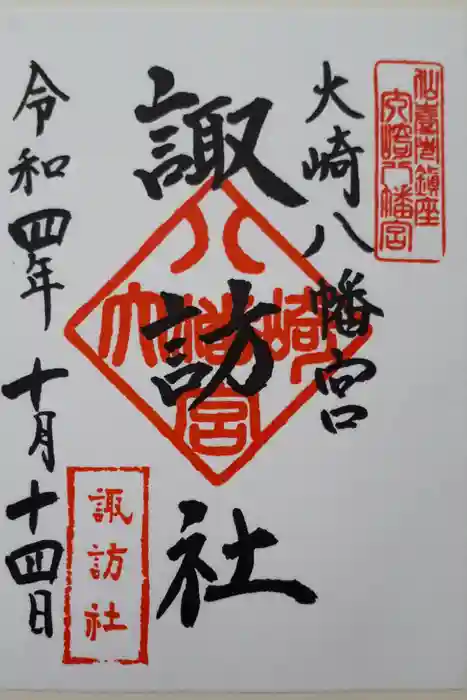 仙臺巷鎮座
大崎八幡宮
大崎八幡宮
大崎八幡宮
諏訪社
諏訪社
令和四年十月十四日